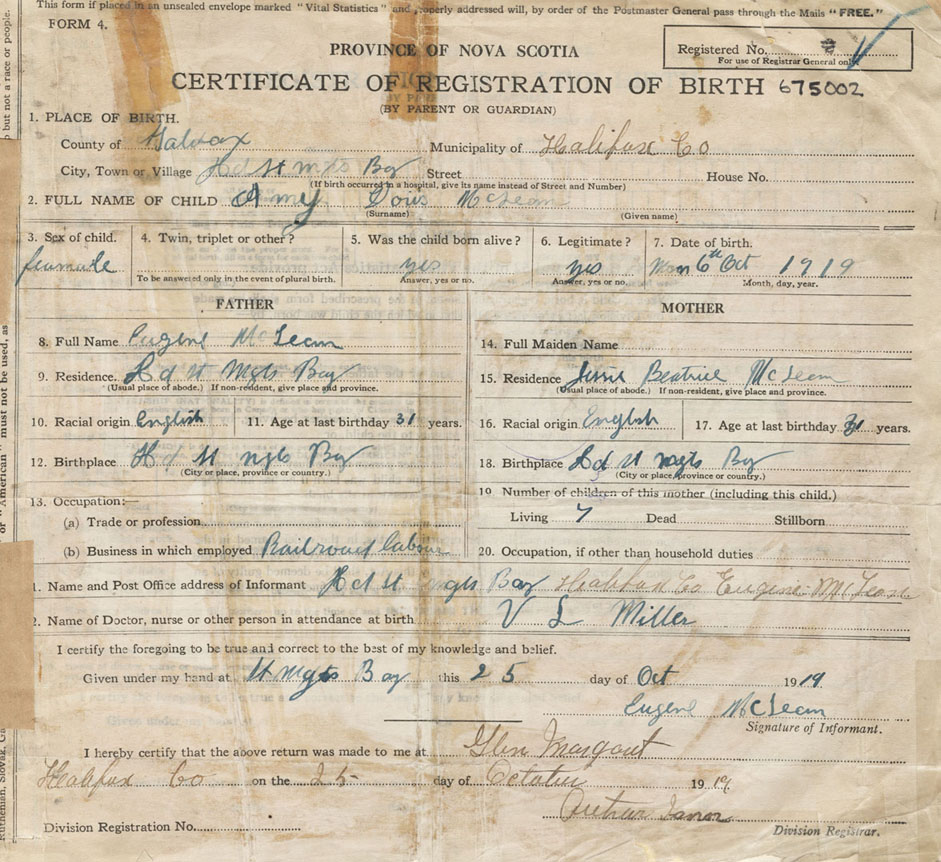 This form if placed in an unsealed envelope marked "Vital Statistics" and properly addressed will, by order of the Postmaster General pass through the Mails "FREE."
FORM 4.
PROVINCE OF NOVA SCOTIA
Registered No.
For use of Registrar General only
CERTIFICATE OF REGISTRATION OF BIRTH 675002
(BY PARENT OR GUARDIAN)
1. PLACE OF BIRTH.
County of Halifax Municipality of Halifax Co
City, Town or Village Hd St Mgts Bay Street House No.
(If birth occurred in a hospital, give its name instead of Street and Number)
2. FULL NAME OF CHILD Amy Doris McLean
(Surname) (Given name)
3. Sex of child. 4. Twin, triplet or other? 5. Was the child born alive? 6. Legitimate? 7. Date of birth.
female yes yes Mon 6th Oct 1919
To be answered only in the event of plural birth. Answer, yes or no. Answer, yes or no. Month, day, year.
FATHER MOTHER
8. Full Name Eugene McLean 14. Full Maiden Name
9. Residence. Hd St Mgts Bay 15. Residence Jessie Beatrice McLean
(Usual place of abode.) If non-resident, give place and province. (Usual place of abode.) If non-resident, give place and province.
10. Racial origin English 11. Age at last birthday 31 years. 16. Racial origin English 17. Age at last birthday 31 years.
12. Birthplace Hd St Mgts Bay 18. Birthplace Hd St Mgts Bay
(City or place, province or country.) (City or place, province or country.)
13. Occupation:— 19. Number of children of this mother (including this child.)
(a) Trade or profession Living 7 Dead Stillborn
(b) Business in which employed Railroad labour 20. Occupation, if other than household duties
1. Name and Post Office address of Informant Hd St Mgts Bay Halifax Co Eugene McLean
2. Name of Doctor, nurse or other person in attendance at birth V L Miller
I certify the foregoing to be true and correct to the best of my knowledge and belief.
Given under my hand at St Mgts Bay this 25 day of Oct 1919.
Eugene McLean
Signature of Informant.
I hereby certify that the above return was made to me at Glen Margaret
Halifax Co on the 25 day of October 1919.
Arthur
Division Registration No. Division Registrar.
but not a race or people.
or "American" must not be used, as